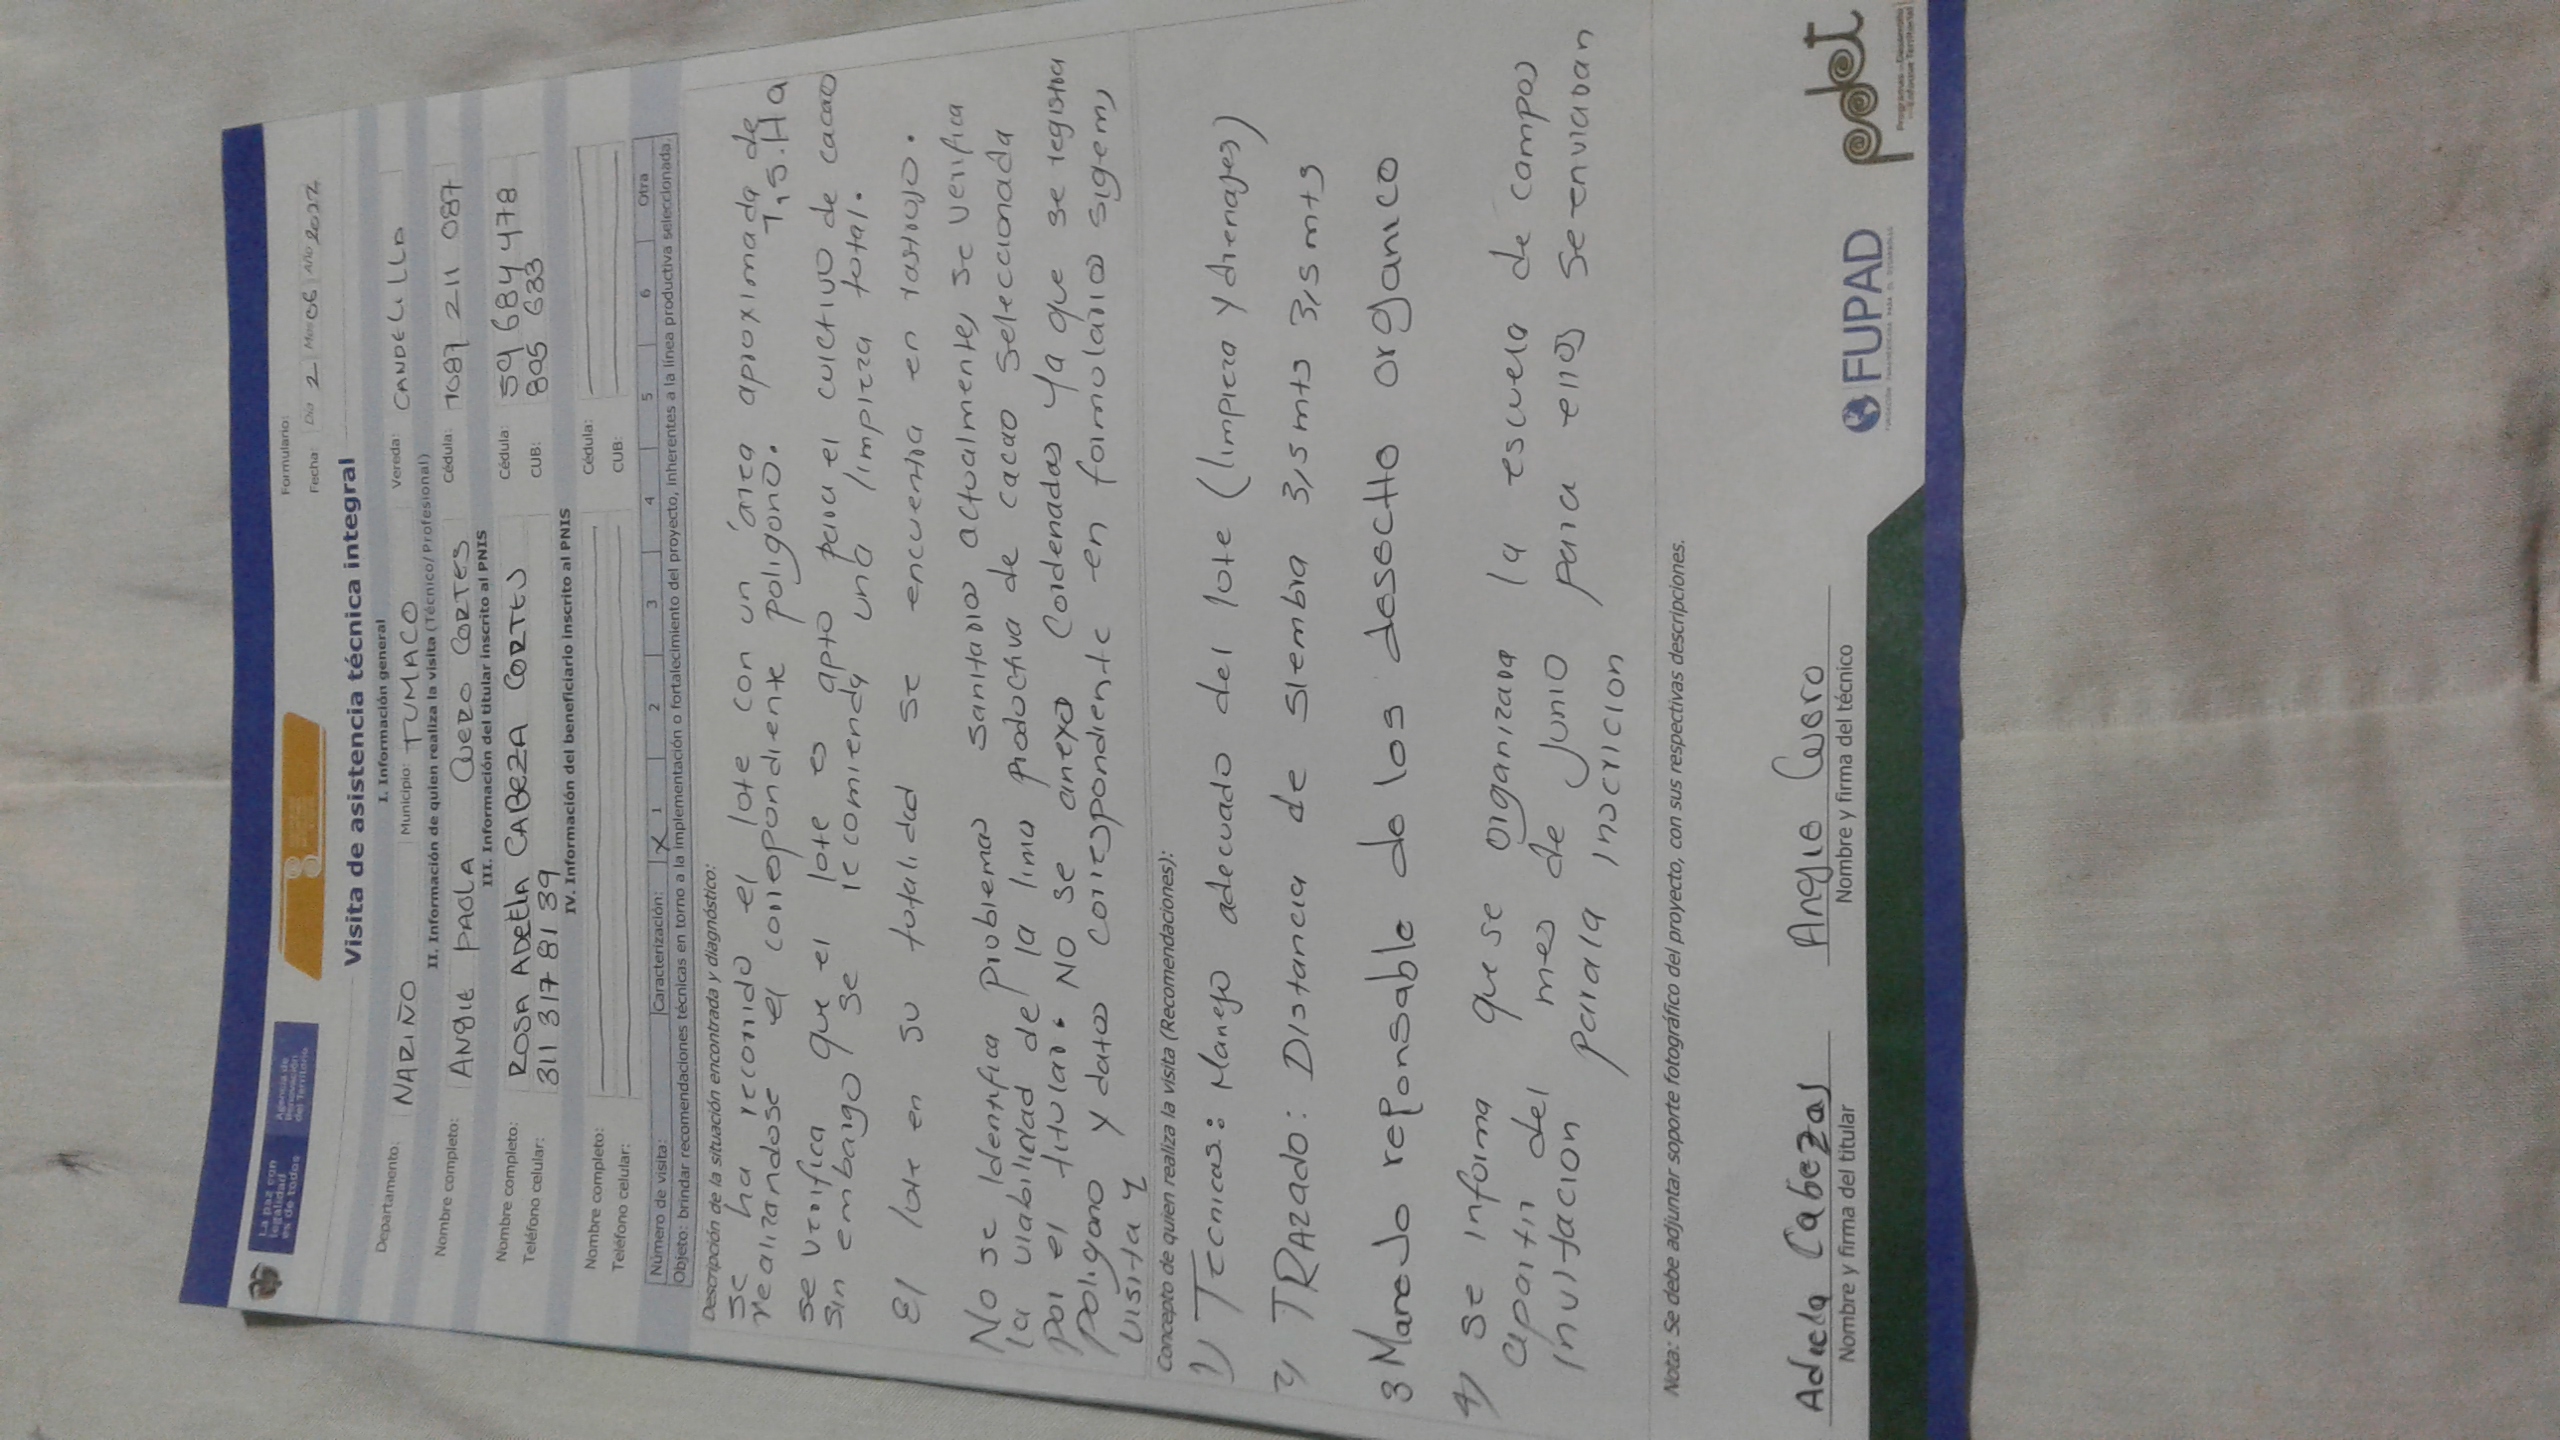 La paz con
legalidad
es de todos
Agencia de
Renovación
del Territorio
Formulario:
Fecha: Día 2 Mes 06 Año 2022
Visita de asistencia técnica integral
I. Información general
Departamento: NARIÑO Municipio: TUMACO Vereda: CANDELILLA
II. Información de quien realiza la visita (Técnico/Profesional)
Nombre completo: ANGIE PAOLA CUERO CORTES Cédula: 1087 211 087
III. Información del titular inscrito al PNIS
Nombre completo: ROSA ADELLA CABEZA CORTES Cédula: 59 684 478
Teléfono celular: 311 317 81 39 CUB: 805 633
IV. Información del beneficiario inscrito al PNIS
Nombre completo: Cédula:
Teléfono celular: CUB:
Número de visita: Caracterización: X 1 2 3 4 5 6 Otra
Objeto: brindar recomendaciones técnicas en torno a la implementación o fortalecimiento del proyecto, inherentes a la línea productiva seleccionada.
Descripción de la situación encontrada y diagnóstico:
se ha recorrido el lote con un área aproximada de
realizandose el correspondiente poligono. 1,5.HA
se verifica que el lote es apto para el cultivo de cacao
sin embargo se recomienda una limpieza total.
El lote en su totalidad se encuentra en rastrojo.
No se Identifica problemas sanitarios actualmente, se verifica
la viabilidad de la linea productiva de cacao seleccionada
Por el titular. NO se anexa Cordenadas ya que se registra
poligono y datos correspondiente en formulario sigem,
visita 4
Concepto de quien realiza la visita (Recomendaciones):
1) Tecnicas: Manejo adecuado del lote (limpieza y drenajes)
2) TRAzado: Distancia de siembra 3,5 mts 3,5 mts
3 Manejo reponsable de los desectto organico
4) se informa que se organizara la escuela de campos
apartir del mes de Junio para ellos se enviaran
invitacion para la inscricion
Nota: Se debe adjuntar soporte fotográfico del proyecto, con sus respectivas descripciones.
Adiela Cabezas Angie Cuero
Nombre y firma del titular Nombre y firma del técnico
FUPAD
FUNDACIÓN PANAMERICANA PARA EL DESARROLLO
pdet
Programas de Desarrollo
con Enfoque Territorial